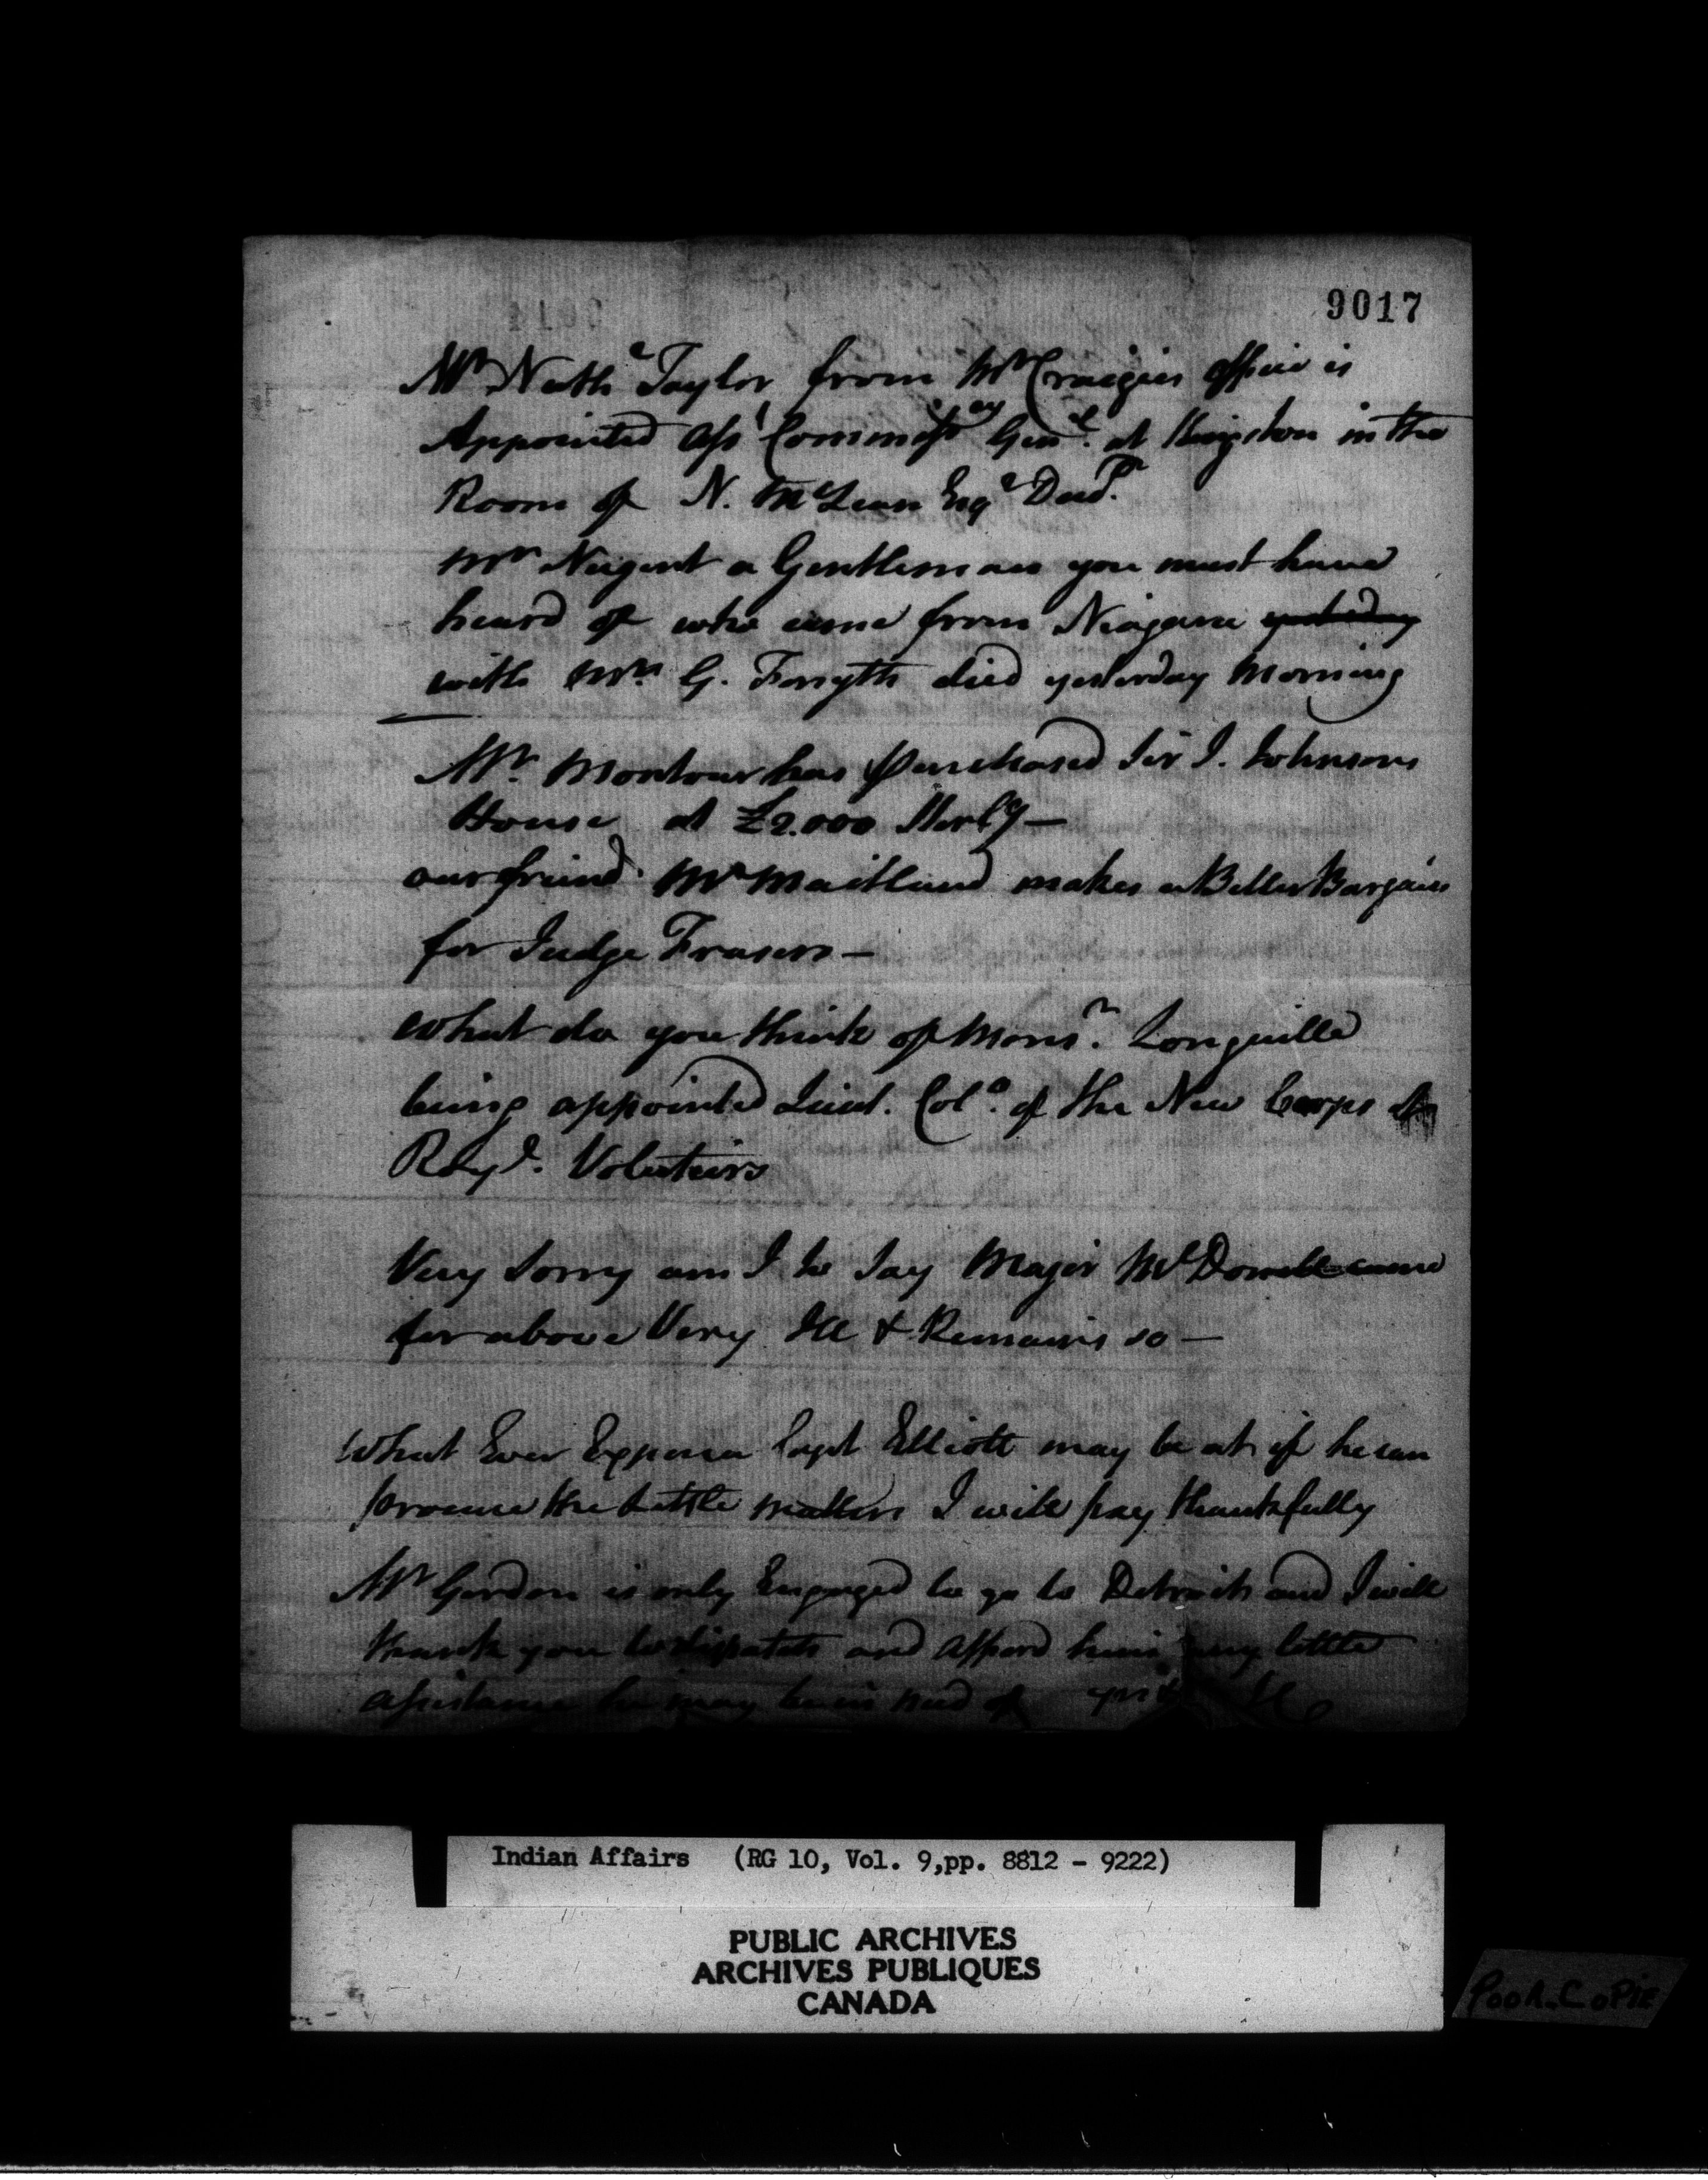 9017
Mr. Nathl. Taylor from Mr Craigies Office is
Appointed Asst Commissy Genl. at Kingston in the
Room of N. McLean Esqr Decd.
Mr Nugent a Gentleman you must have
heard of who came from Niagara yesterday
with Mr. G. Forsyth died yesterday Morning
Mr. Montour has Purchased Sir J. Johnsons
House at £2.000 Sterlg —
our friend Mr Maitland makes a Better Bargain
for Judge Frasers —
What do you think of Monsr. Longuille
being appointed Lieut. Colo. of the New Corps of
Royl. Voluteirs
Very Sorry am I to Say Major McDonell came
for above Very Ill & Remains so —
What Ever Expence Capt Elliott may be at if he can
procure the Little matters I will pay thankfully
Mr Gordon is only Engaged to go to Detroit and I will
thank you to dispatch and afford him any little
assistance he may be in need of
Indian Affairs (RG 10, Vol. 9,pp. 8812 - 9222)
PUBLIC ARCHIVES
ARCHIVES PUBLIQUES
CANADA
POOR.COPIE